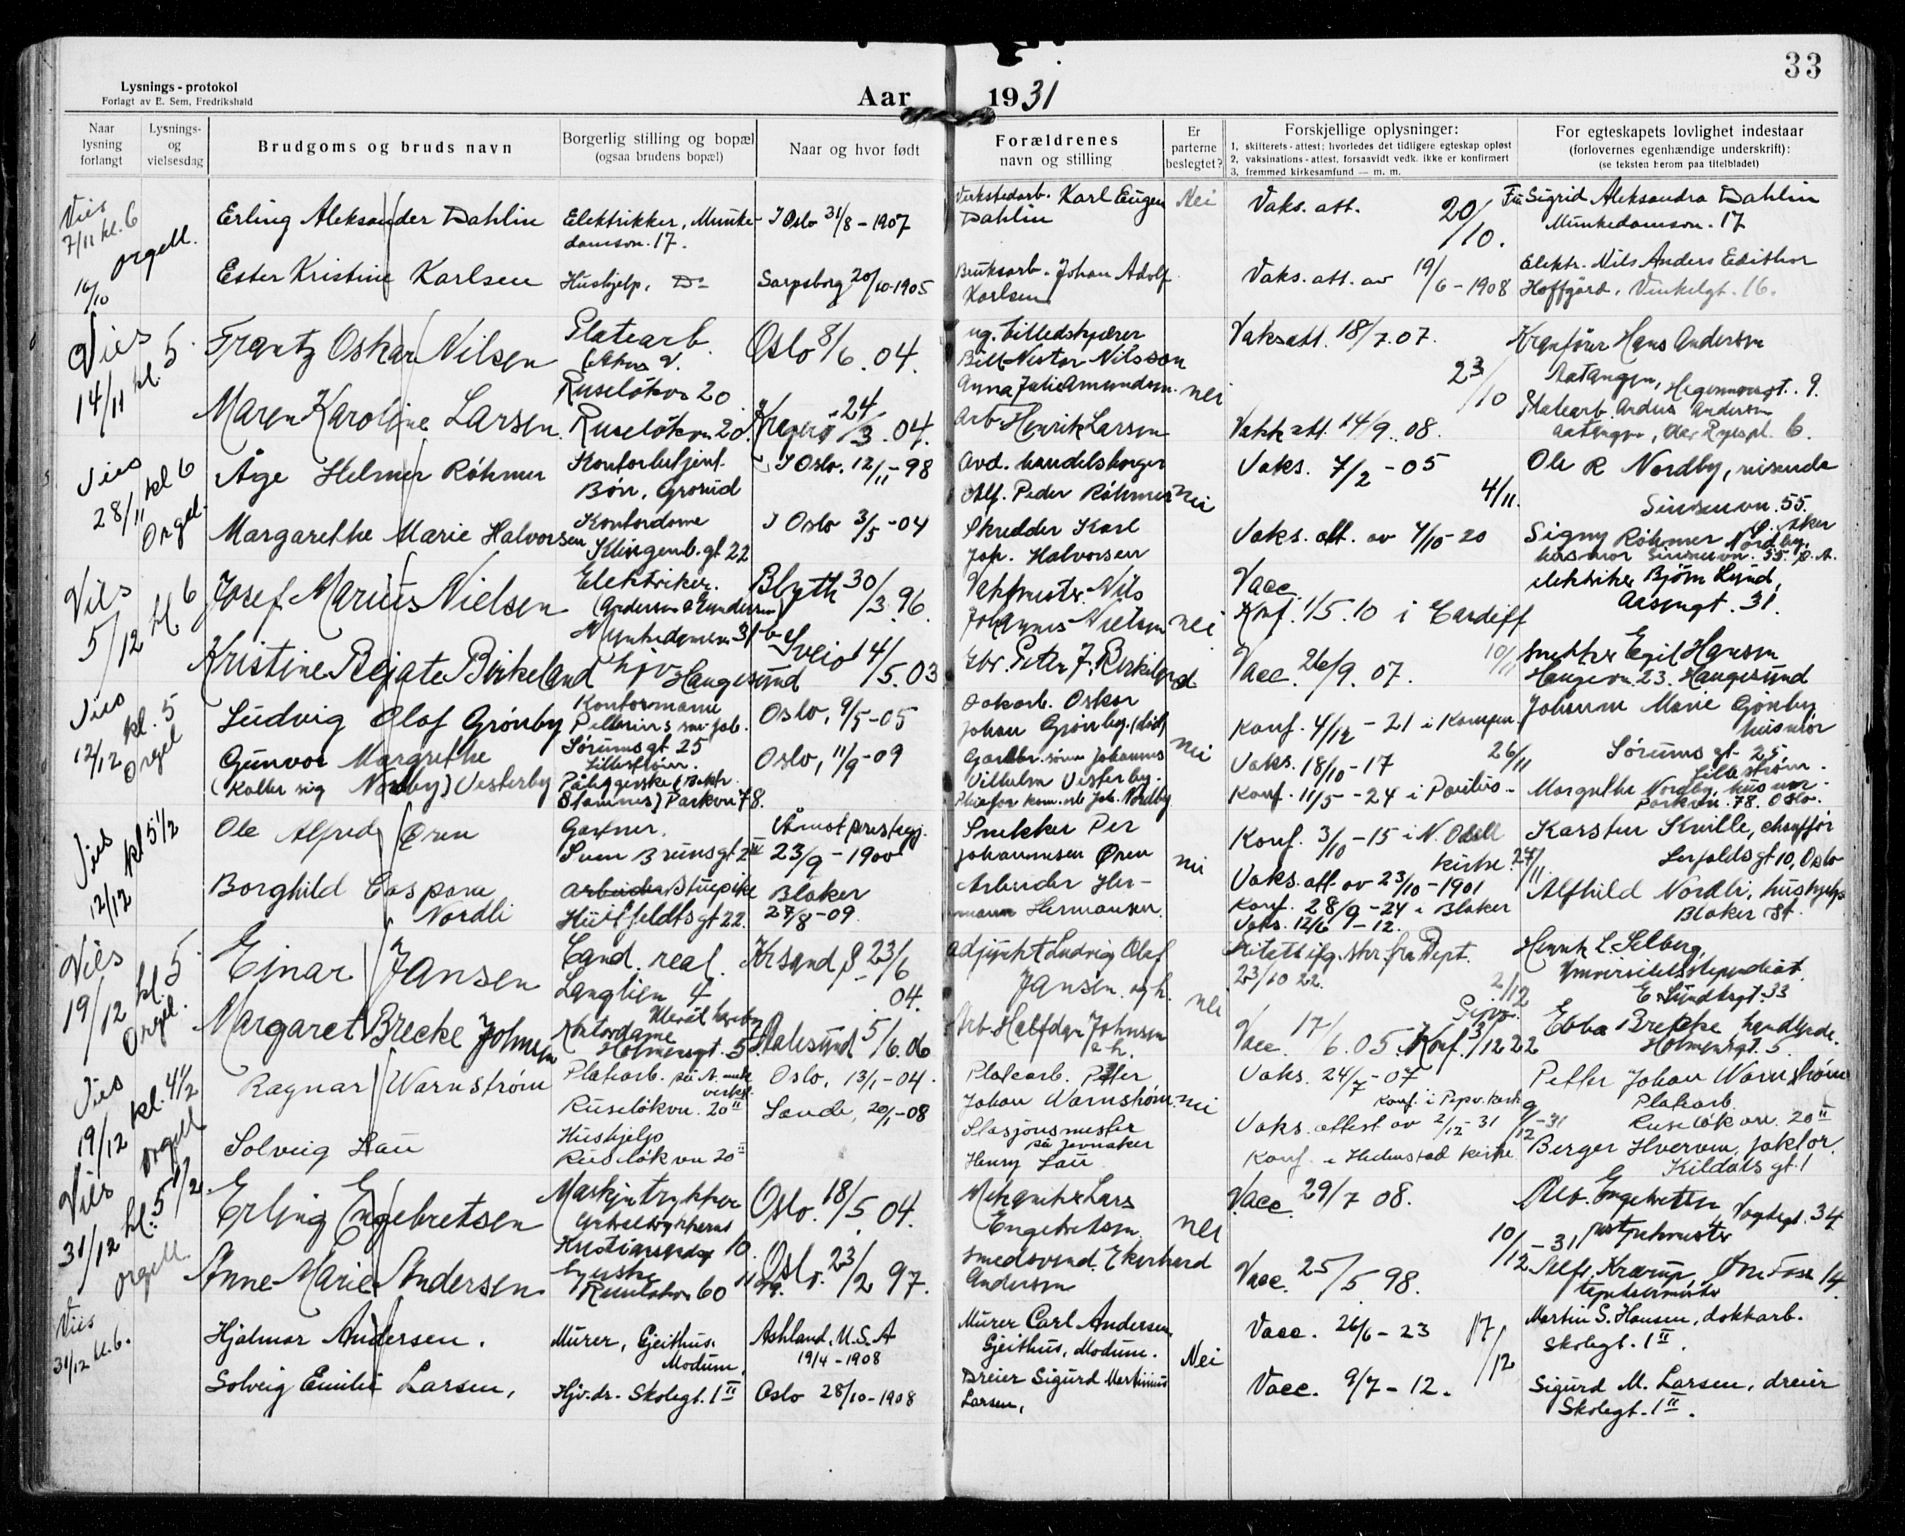 33
Lysnings-protokol
Forlagt av E. Sem, Fredrikshald
Aar 1931
Naar lysning forlangt
Lysnings- og vielsesdag
Brudgoms og bruds navn
Borgerlig stilling og bopæl
(ogsaa brudens bopæl)
Naar og hvor født
Forældrenes
navn og stilling
Er parterne beslegtet?
Forskjellige oplysninger:
1. skifterets-attest; hvorledes det tidligere egteskap opløst
2. vaksinations-attest, forsaavidt vedk. ikke er konfirmert
3. fremmed kirkesamfund — m. m.
For egteskapets lovlighet indestaar
(forlovernes egenhændige underskrift):
(se teksten herom paa titelbladet)
Vies 7/11 kl. 6
orgell.
16/10
Erling Aleksander Dahlin
Elektrikker, Munke-
damsvn. 17.
I Oslo 31/8 - 1907
Verkstedarb. Karl Eugen
Dahlin
Nei
Vaks. att.
20/10.
Sigrid Aleksandra Dahlin
Munkedamsvn. 17
Ester Kristine Karlsen
Hushjelp, Do
Sarpsborg 20/10-1905
Bruksarb. Johan Adolf
Karlsen
Vaks. att. av 19/6 - 1908
Elektr. Nils Anders Edithor
Hoffgård, Vinkelgt. 16.
Vies 14/11 kl. 5
Frantz Oskar Nilsen
Platearb.
(Akers V.
Ruseløkvn 20
Oslo 8/6. 04.
ug. billedskjærer
Nestor Nilsson
Anna Julie Amundsen.
nei
Vaksatt. 18/7. 07.
23/10
Kranfører Hans Andersen
Aatangen, Hegermannsgt. 9.
Maren Karoline Larsen
Ruseløkvn 20.
Kragerø 24/3. 04.
Arb. Henrik Larsen
Vakk att. 14/9. 08.
Platearb. Andreas Andersen
Aatangen, 6.
Vies 28/11 kl 6
Orgel.
Åge Helmer Røhmer
Kontorbetjent.
Bön, Grorud
I Oslo. 12/11 - 98
Avd. handelsborger
Alf. Peder Røhmer
nei
Vaks. 7/2 - 05
4/11.
Ole R Nordby, reisende
Sinsenvn. 55.
Margarethe Marie Halvorsen
Kontordame
Klingenb. gt 22
I Oslo 3/5 - 04
Skredder Karl
Joh. Halvorsen
Vaks. att. av 4/10 - 20
Signy Røhmer Nordby,
husmor Sinsenvn. 55. Ø. A.
Vies 5/12 kl 6
Josef Marius Nielsen
Elektriker.
(Andersen & Gundersen)
Munkedamsvn 31 b
Blyth 30/3. 96.
Vaktmester Nils
Johannes Nielsen
nei
Vacc.
Konf. 1/5. 10 i Cardiff
10/11
elektriker Bjørn Lund,
Aasengt. 31.
Kristine Beate Birkeland
hjv. Haugesund
Sveio 14/5. 03
Gbr. Peter J. Birkeland
Vacc. 26/9. 07.
snekker Egil Hansen
Haugevn. 23. Haugesund
Vies 12/12 kl. 5
Orgel
Ludvig Olaf Grønby
Kontormann
Sørumsgt 25
Lillestrøm.
Oslo, 9/5 - 05
Sakarb. Oskar
Johan Grønby, (død)
nei
Konf. 4/12 - 21 i Kampen
26/11
Johanne Marie Grønby
husmor
Sørums gt 25
Lillestrøm.
Gunvor Margrethe
(Kaller sig Nordby) Vesterby
Påleggerske
Stamnes) Parkvn 78.
Oslo, 11/9 - 09
Johannes
Vilhelm Vesterby.
Pleiefor. Joh. Nordby
Vaks. 18/10 - 17
Konf. 11/5 - 24 i Paulus -
Margrethe Nordby, husmor
Parkvn. 78. Oslo.
Vies 12/12 kl 5 1/2
Ole Alfred Øren
Gartner.
Sven Brunsgt 2 III
Åmot prestegj.
23/9 - 1900
Snekker Per
Johannesen Øren
nei
Konf. 3/10 - 15 i N. Odall
kirke. 27/11.
Karsten Kville, chauffør
gt 10, Oslo
Borghild Caspara
Nordli
Arbeider Stuepike
Huitfeldtsgt 22.
Blaker
27/8 - 09.
Arbeider Her-
mann Hermansen.
Vaks. att. av 23/10 - 1901
Konf. 28/9 - 24 i Blaker
Vaks. 12/6 - 12.
Alfhild Nordli, hushjelp
Blaker St.
Vies 19/12 kl. 5.
Orgel.
Einar Jansen
Cand. real.
Langlien 4
Krsand S 23/6 04.
adjunkt Ludvig Olaf
Jansen. og h.
nei
Attest ifg. skr. fra Dept.
23/10 22.
2/12
Henrik L. Selberg,
Universitetsstipendiat.
E. Sundtsgt. 33
Margaret Brecke Johnsen
Kontordame
Holmensgt. 5.
Aalesund 5/6. 06
Arb. Halfdan Johnsen
e. h.
Vacc. 17/6. 05. Konf. 3/12 22
Ebba Brekke handlende.
Holmensgt. 5.
Vies 19/12 kl. 4 1/2
orgell
Ragnar Warnstrøm
Platearb. på A. mek
verksted.
Ruseløkvn. 20 II
Oslo, 13/1 - 04.
Platearb. Petter
Johan Warnstrøm.
nei
Vaks. 24/7 - 07
9/12 - 31
Petter Johan Warnstrøm
Platearb.
Ruseløkvn. 20 II
Solveig Lau
Hushjelp
Ruseløkvn 20 II
Sande, 20/1 - 08
Stasjonsmester
på Jevnaker
Henry Lau
Vaks. attest av 2/12 - 31
Konf. i kirke
Berger Hverven, faktor.
Kildals gt. 1
Vies 31/12 kl. 5 1/2
orgell.
Erling Engebretsen
Maskintrykker
Kristiansandsgt 10.
Oslo. 18/5. 04.
Mekaniker Lars
Engebretsen
nei
Vacc. 29/7 08.
10/12 - 31
Alb. Engebretsen Vogtsgt. 34
Anne Marie Andersen
syerske
Ruseløkvn 60
Oslo. 23/2 97.
Smedsvend Ekenhard
Andersen
Vacc. 25/5. 98.
Alfr. Krarup, 14
Vies 31/12 kl. 6.
Hjalmar Andersen.
Murer, Gjeithus.
Modum.
Ashland, U.S.A
19/4 - 1908
Murer Carl Andersen,
Gjeithus, Modum.
Nei
Vacc. 26/6 - 23
17/12
Martin S. Hansen, dokkarb.
Skolegt. 1 II.
Solveig Emilie Larsen,
Hjv. dr. Skolegt. 1 II
Oslo 28/10 - 1908
Dreier Sigurd Martinius
Larsen,
Vacc. 9/7 - 12.
Sigurd M. Larsen, dreier
Skolegt. 1 II.